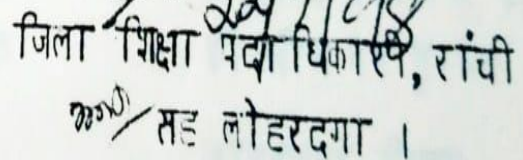 जिला शिक्षा पदाधिकारी, रांची
सह लोहरदगा ।